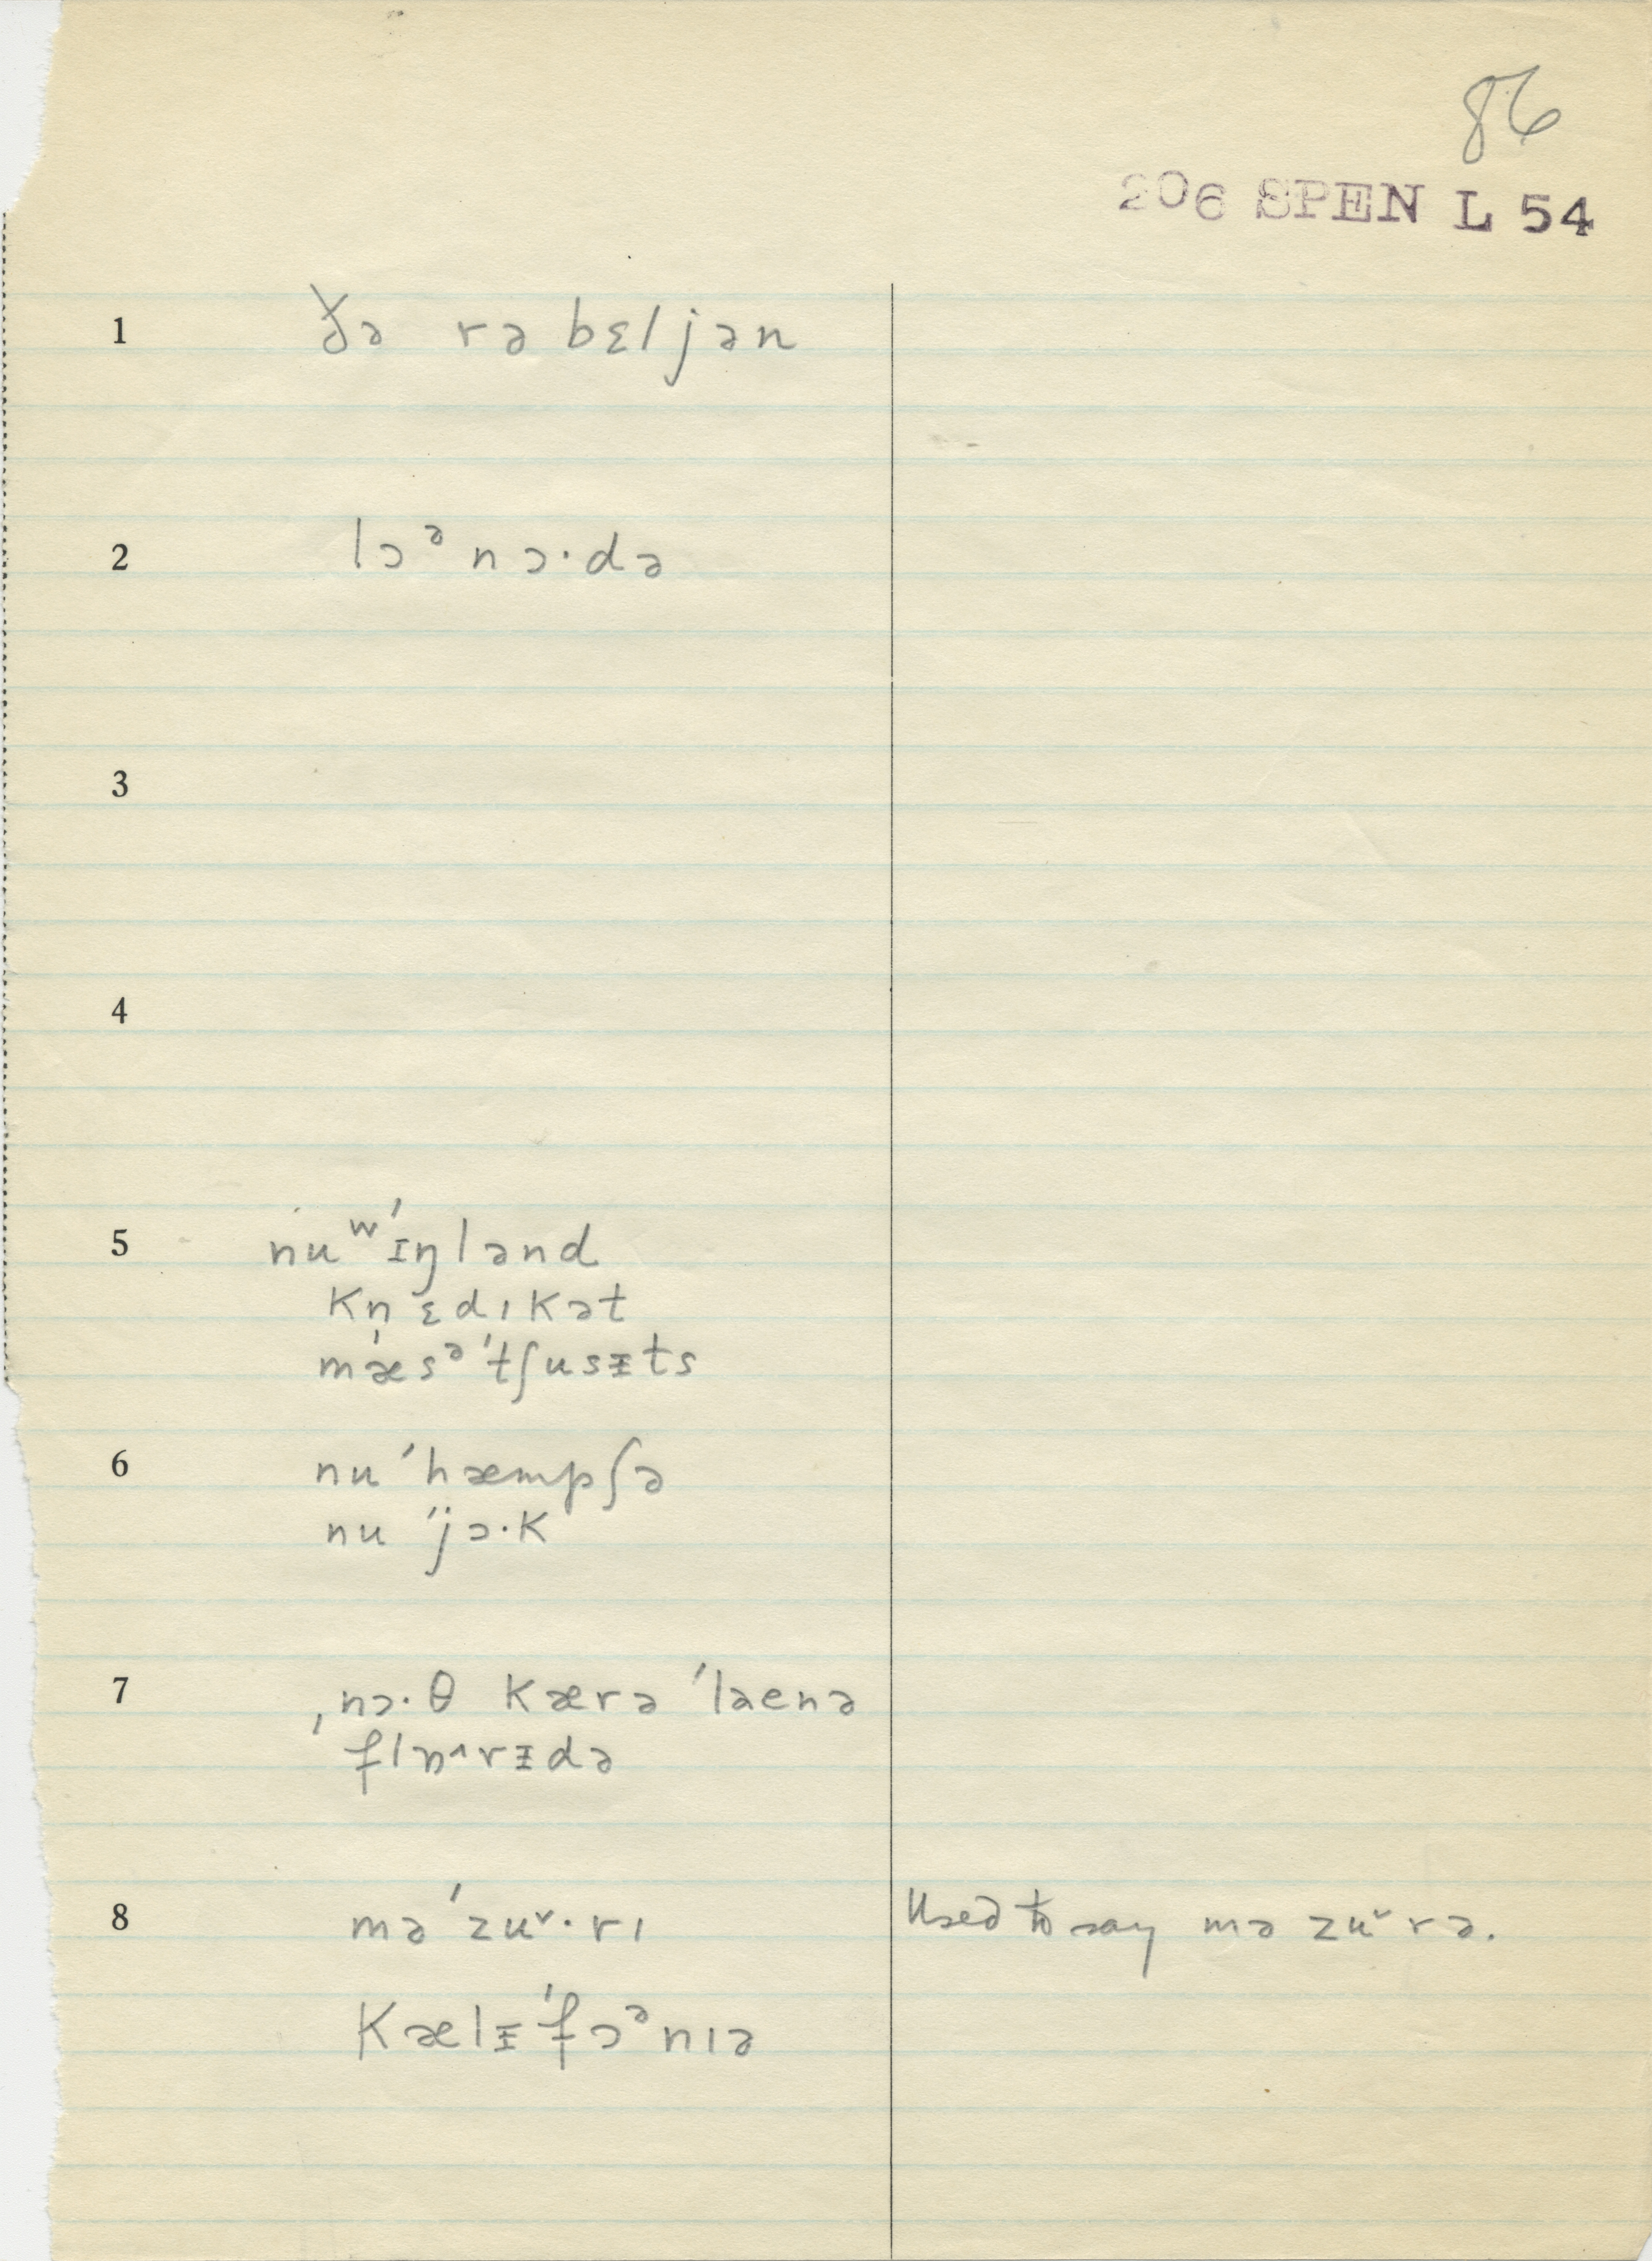 86
206 SPEN L 54
1 ðə rəbɛljən
2 lɔᵊ nɔ·də
3
4
5 nuʷˊᵻŋlənd
kn̩ɛdıkət
mæ̍sᵊˊtʃusᵻts
6 nuˊhæmpʃə
nuˊjɔ·k
7 ˌnɔ·θ kærəˊlaenə
flɒ˄rᵻdə
8 məˊzu˅·rı Used to say məzu˅rə.
kælᵻˊfɔᵊnıə